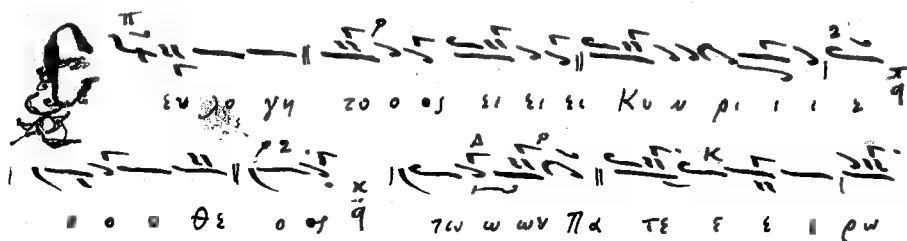 Ευ λο γη το ο ος ει ει ει Κυ υ ρι ι ι ε
ο ο ο Θε ο ος τω ω ων Πα τε ε ε ρω